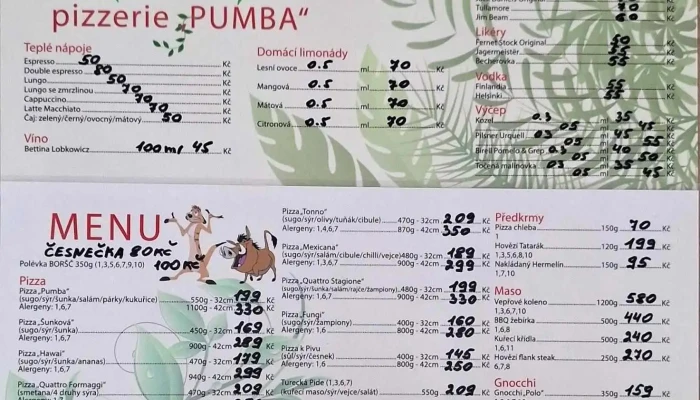 pizzerie „PUMBA“
Teplé nápoje
Espresso 50 Kč
Double espresso 80 Kč
Lungo 50 Kč
Lungo se zmrzlinou 70 Kč
Cappuccino 70 Kč
Latte Macchiato 70 Kč
Čaj: zelený/černý/ovocný/mátový 50 Kč
Víno
Bettina Lobkowicz 100ml 45 Kč
Domácí limonády
Lesní ovoce 0.5 ml 70 Kč
Mangová 0.5 ml 70 Kč
Mátová 0.5 ml 70 Kč
Citronová 0.5 ml 70 Kč
Tullamore
Jim Beam 60
Likéry
Fernet Stock Original 50
Jagermeister 55
Becherovka 55
Vodka
Finlandia 55
Helsinki 55
Výčep
Kozel 0.3 ml 35
05 45
Pilsner Urquell 03 ml 45
05 55
Birell Pomelo & Grep 03 ml 40
05 50
Točená malinovka 03 ml 35
05 ml 45
MENU
ČESNEČKA 80KČ
Polévka BORŠČ 350g (1,3,5,6,7,9,10) 100Kč
Pizza
Pizza „Pumba“
(sugo/sýr/šunka/salám/párky/kukuřice) 550g - 32cm 199 Kč
Alergeny: 1,6,7 1100g - 42cm 330 Kč
Pizza „Šunková“
(sugo/sýr/šunka) 450g - 32cm 169 Kč
Alergeny: 1,6,7 900g - 42cm 289 Kč
Pizza „Hawai“
(sugo/sýr/šunka/ananas) 470g - 32cm 179 Kč
940g - 42cm 299 Kč
Pizza „Quattro Formaggi“
(smetana/4 druhy sýra) 470g - 32cm 209 Kč
Pizza „Tonno“
(sugo/sýr/olivy/tuňák/cibule) 470g - 32cm 209 Kč
Alergeny: 1,4,6,7 870g - 42cm 350 Kč
Pizza „Mexicana“
(sugo/sýr/salám/cibule/chilli/vejce) 480g - 32cm 189 Kč
Alergeny: 1,3,6,7 900g - 42cm 299 Kč
Pizza „Quattro Stagione“
(sugo/sýr/šunka/salám/rajče/žampiony) 480g - 32cm 199 Kč
Alergeny: 1,6,7 900g - 42cm 330 Kč
Pizza „Fungi“
(sugo/sýr/žampiony) 400g - 32cm 160 Kč
Alergeny: 1,6 800g - 42cm 280 Kč
Pizza k Pivu
(sůl/sýr/česnek) 400g - 32cm 145 Kč
Alergeny: 1,6 800g - 42cm 250 Kč
Turecká Pide (1,3,6,7)
(kuřecí maso/sýr/vejce/salát) 550g 209 Kč
Předkrmy
Pizza chleba 150g 70 Kč
1
Hovězí Tatarák 120g 199 Kč
1,3,5,6,8,10
Nakládaný Hermelín 150g 95 Kč
1,7,10
Maso
Vepřové koleno 1200g 580 Kč
1,3,6,7,10
BBQ žebírka 500g 440 Kč
1,6,8
Kuřecí křídla 500g 240 Kč
1,6,10,11
Hovězí flank steak 250g 270 Kč
6,7,8
Gnocchi
Gnocchi „Polo“ 350g 159 Kč